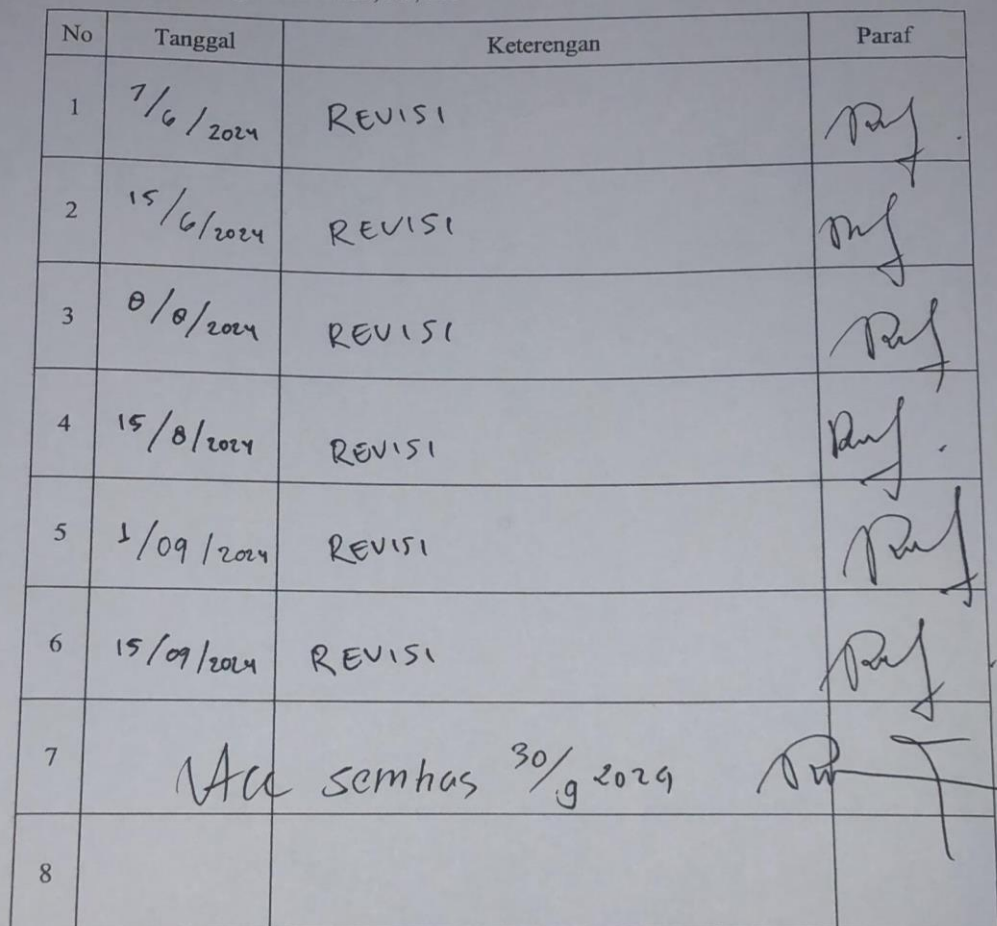 No Tanggal Keterengan Paraf
1 7/6/2024 REVISI
2 15/6/2024 REVISI
3 8/8/2024 REVISI
4 15/8/2024 REVISI
5 1/09/2024 REVISI
6 15/09/2024 REVISI
7 Acc semhas 30/9 2024
8